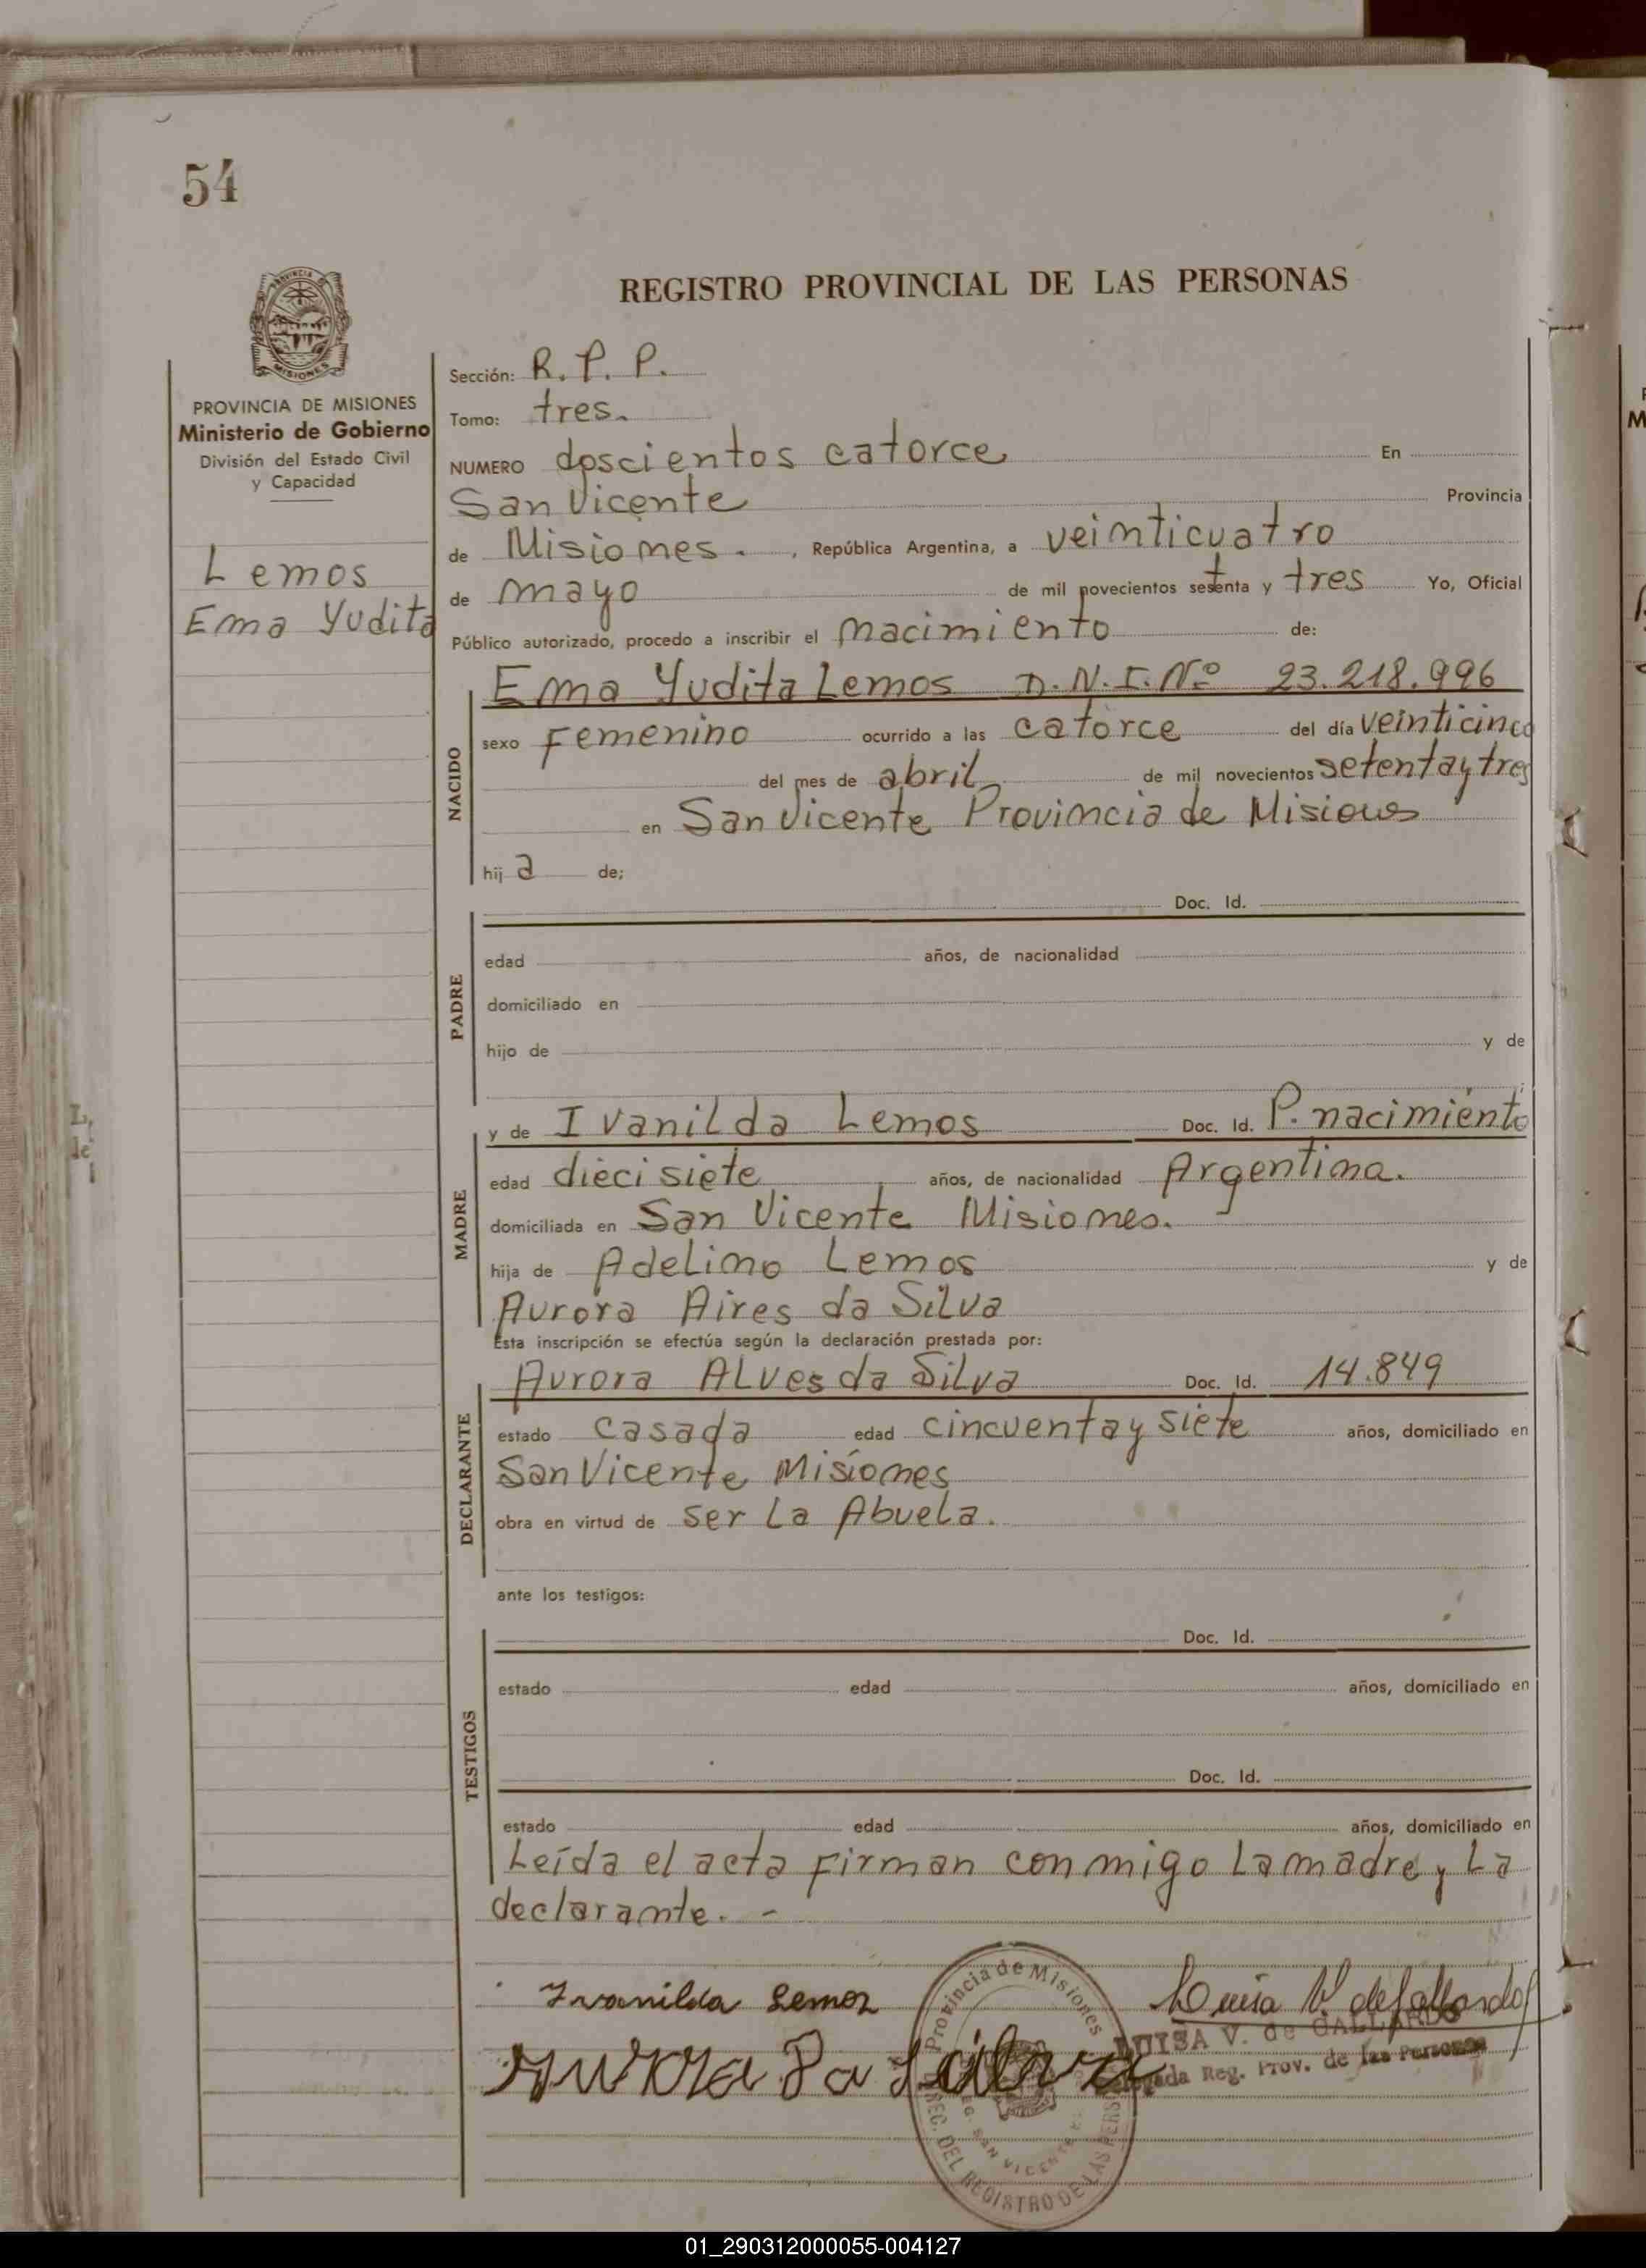 54
REGISTRO PROVINCIAL DE LAS PERSONAS
PROVINCIA DE MISIONES
Ministerio de Gobierno
División del Estado Civil
y Capacidad
Lemos
Ema Yudita
Sección: R. P. P.
Tomo: tres.
NUMERO doscientos catorce En
San Vicente Provincia
de Misiones. , República Argentina, a veinticuatro
de mayo de mil novecientos setenta y tres Yo, Oficial
Público autorizado, procedo a inscribir el nacimiento de:
NACIDO
Ema Yudita Lemos D.N.I.Nº 23.218.996
sexo Femenino ocurrido a las catorce del día veinticinco
del mes de abril de mil novecientos setenta y tres
en San Vicente Provincia de Misiones
hij a de;
PADRE
Doc. Id.
edad años, de nacionalidad
domiciliado en
hijo de y de
MADRE
y de Ivanilda Lemos Doc. Id. P. nacimiento
edad diecisiete años, de nacionalidad Argentina.
domiciliada en San Vicente Misiones.
hija de Adelino Lemos y de
Aurora Aires da Silva
Esta inscripción se efectúa según la declaración prestada por:
DECLARANTE
Aurora Alves da Silva Doc. Id. 14.849
estado casada edad cincuenta y siete años, domiciliado en
San Vicente Misiones
obra en virtud de ser La Abuela.
ante los testigos:
TESTIGOS
Doc. Id.
estado edad años, domiciliado en
Doc. Id.
estado edad años, domiciliado en
Leída el acta firman conmigo La madre y La
declarante. -
Ivanilda Lemos
Luisa V. de Gallardo
LUISA V. de GALLARDO
Reg. Prov. de las Personas
Aurora Da Silva
Provincia de Misiones
SAN VICENTE
DEL REGISTRO DE LAS PERS
01_290312000055-004127